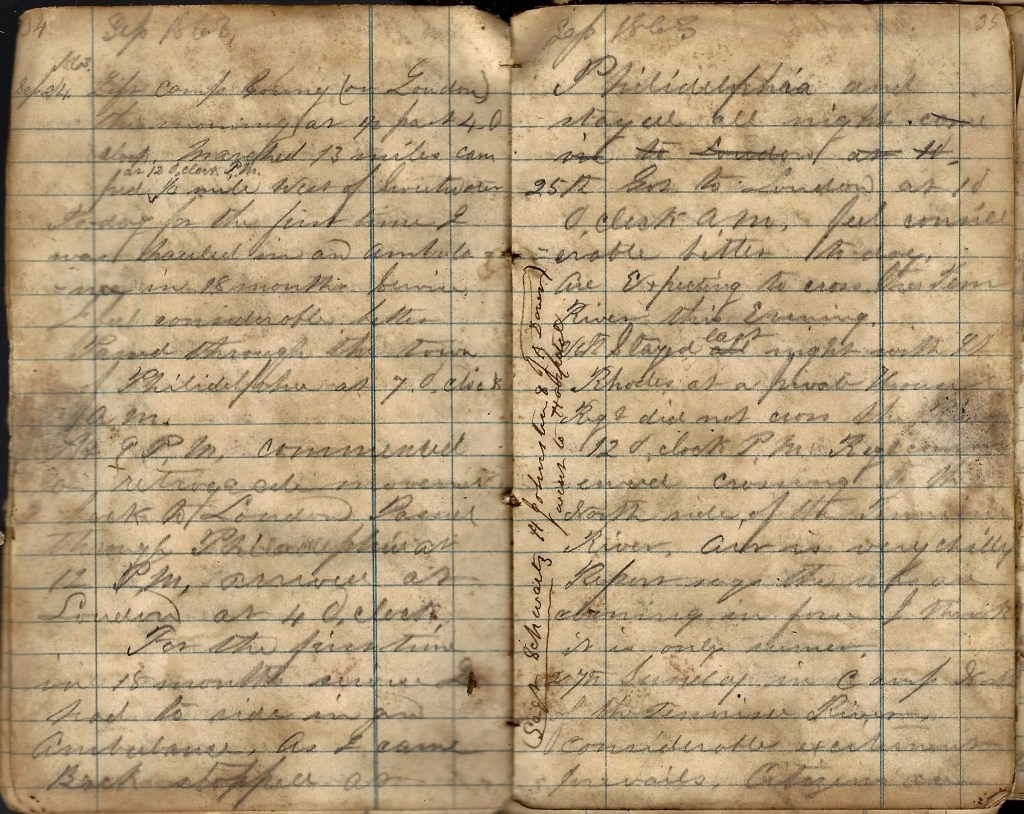 34
Sep 1863
Sep 24. Left camp Loring (or Loudon)
this morning at ½ past 4 O
clock. Marched 13 miles cam
at 12 O,clock P.M.
ped ½ mile West of Sweetwater
To-day for the first time I
was hauled in an Ambula
-nce in 18 months servise
I feel considerable better
Passed through the town
of Philidelphia at 7 O,clock
A.M.
At 9 P.M. commenced
a retrogade movement
back to Loudon. Passed
through Philadelphia at
12 P.M. arrived at
Loudon at 4 O,clock.
For the first time
in 18 months servise I
had to ride in an
Ambulance. As I came
Back stopped at
35
Sep 1863
Philidelphia and
stayed all night. came
in to Loudon at 10
25th Got to Loudon at 10
O,clock A.M. feel consid
erable better to-day.
Are Expecting to cross the Tenn
River this Evening.
26th Stayed last night with
Rhodes at a private House
Regt did not cross the
12 O,clock P.M. Regt comm
enced crossing to the
North side of the Tennessee
River, Air is very chilly
Report says the rebs are
coming in force I think
it is only rumer.
27th Sunday in Camp
the Tennissee River.
considerable excitement
prevails. Citizens are
(Sagt Schwartz H Johnston &
went to Hospital